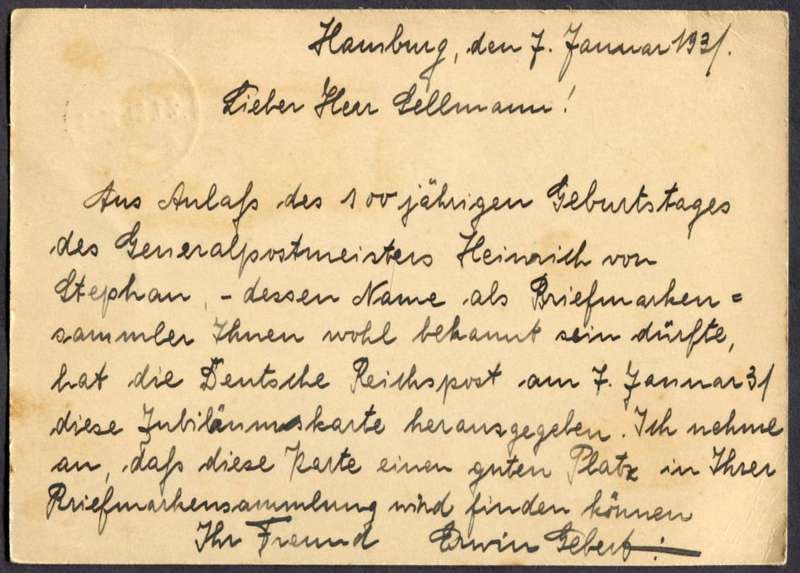 Hamburg, den 7. Januar 1931.
Lieber Herr Gellmann!
Aus Anlaß des 100 jährigen Geburtstages
des Generalpostmeisters Heinrich von
Stephan, - dessen Name als Briefmarken=
sammler Ihnen wohl bekannt sein dürfte,
hat die Deutsche Reichspost am 7. Januar 31
diese Jubiläumskarte herausgegeben. Ich nehme
an, daß diese Karte einen guten Platz in Ihrer
Briefmarkensammlung wird finden können
Ihr Freund Erwin Gebert.